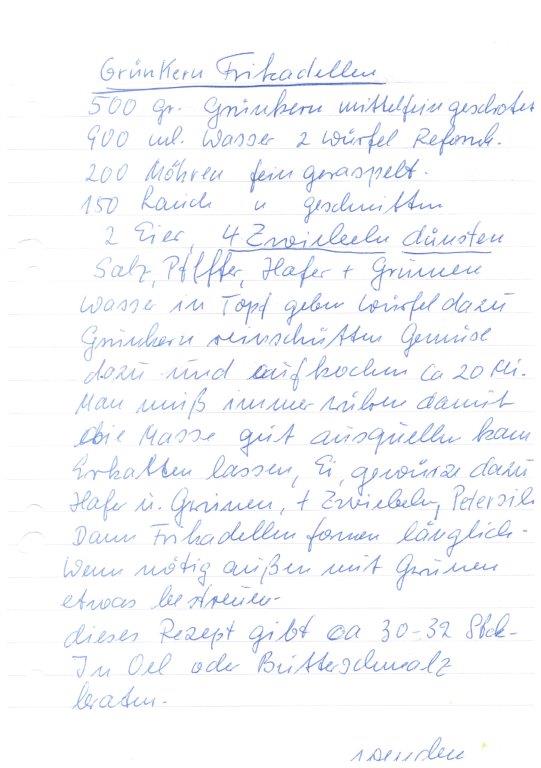 Grünkern Frikadellen
500 gr. Grünkern mittelfein geschrotet
900 ml. Wasser 2 Würfel Reform.
200 Möhren fein geraspelt.
150 Lauch " geschnitten
2 Eier, 4 Zwiebeln dünsten
Salz, Pfeffer, Hafer +
Wasser in Topf geben Würfel dazu
Grünkern reinschütten Gemüse
dazu und aufkochen ca 20 Mi.
Man muß immer rühren damit
die Masse gut ausquellen kann
Erkalten lassen, Ei, gewürze dazu
Hafer u. + Zwiebeln, Petersil
Dann Frikadellen formen länglich-
Wenn nötig außen mit
etwas bestreuen-
dieses Rezept gibt ca 30-32 Stck-
In Oel oder Butterschmalz
braten.
wenden